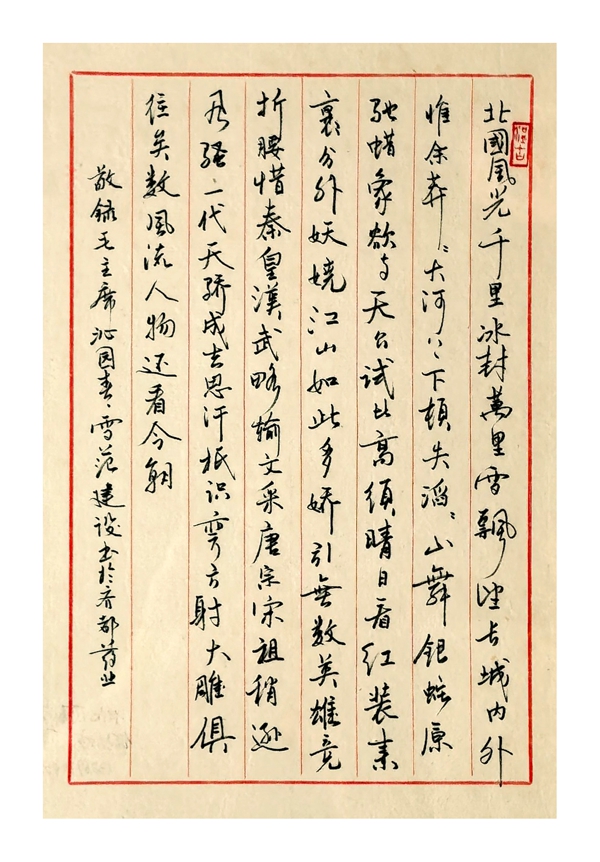 北國風光千里冰封萬里雪飄望长城内外
惟余莽〻大河上下顿失滔〻山舞银蛇原
驰蜡象欲与天公试比高须晴日看红装素
裹分外妖娆江山如此多娇引無数英雄竞
折腰惜秦皇漢武略输文采唐宗宋祖稍逊
风骚一代天骄成吉思汗祇识弯弓射大雕俱
往矣数風流人物还看今朝
敬録毛主席沁园春、雪范建设书於齐都药业